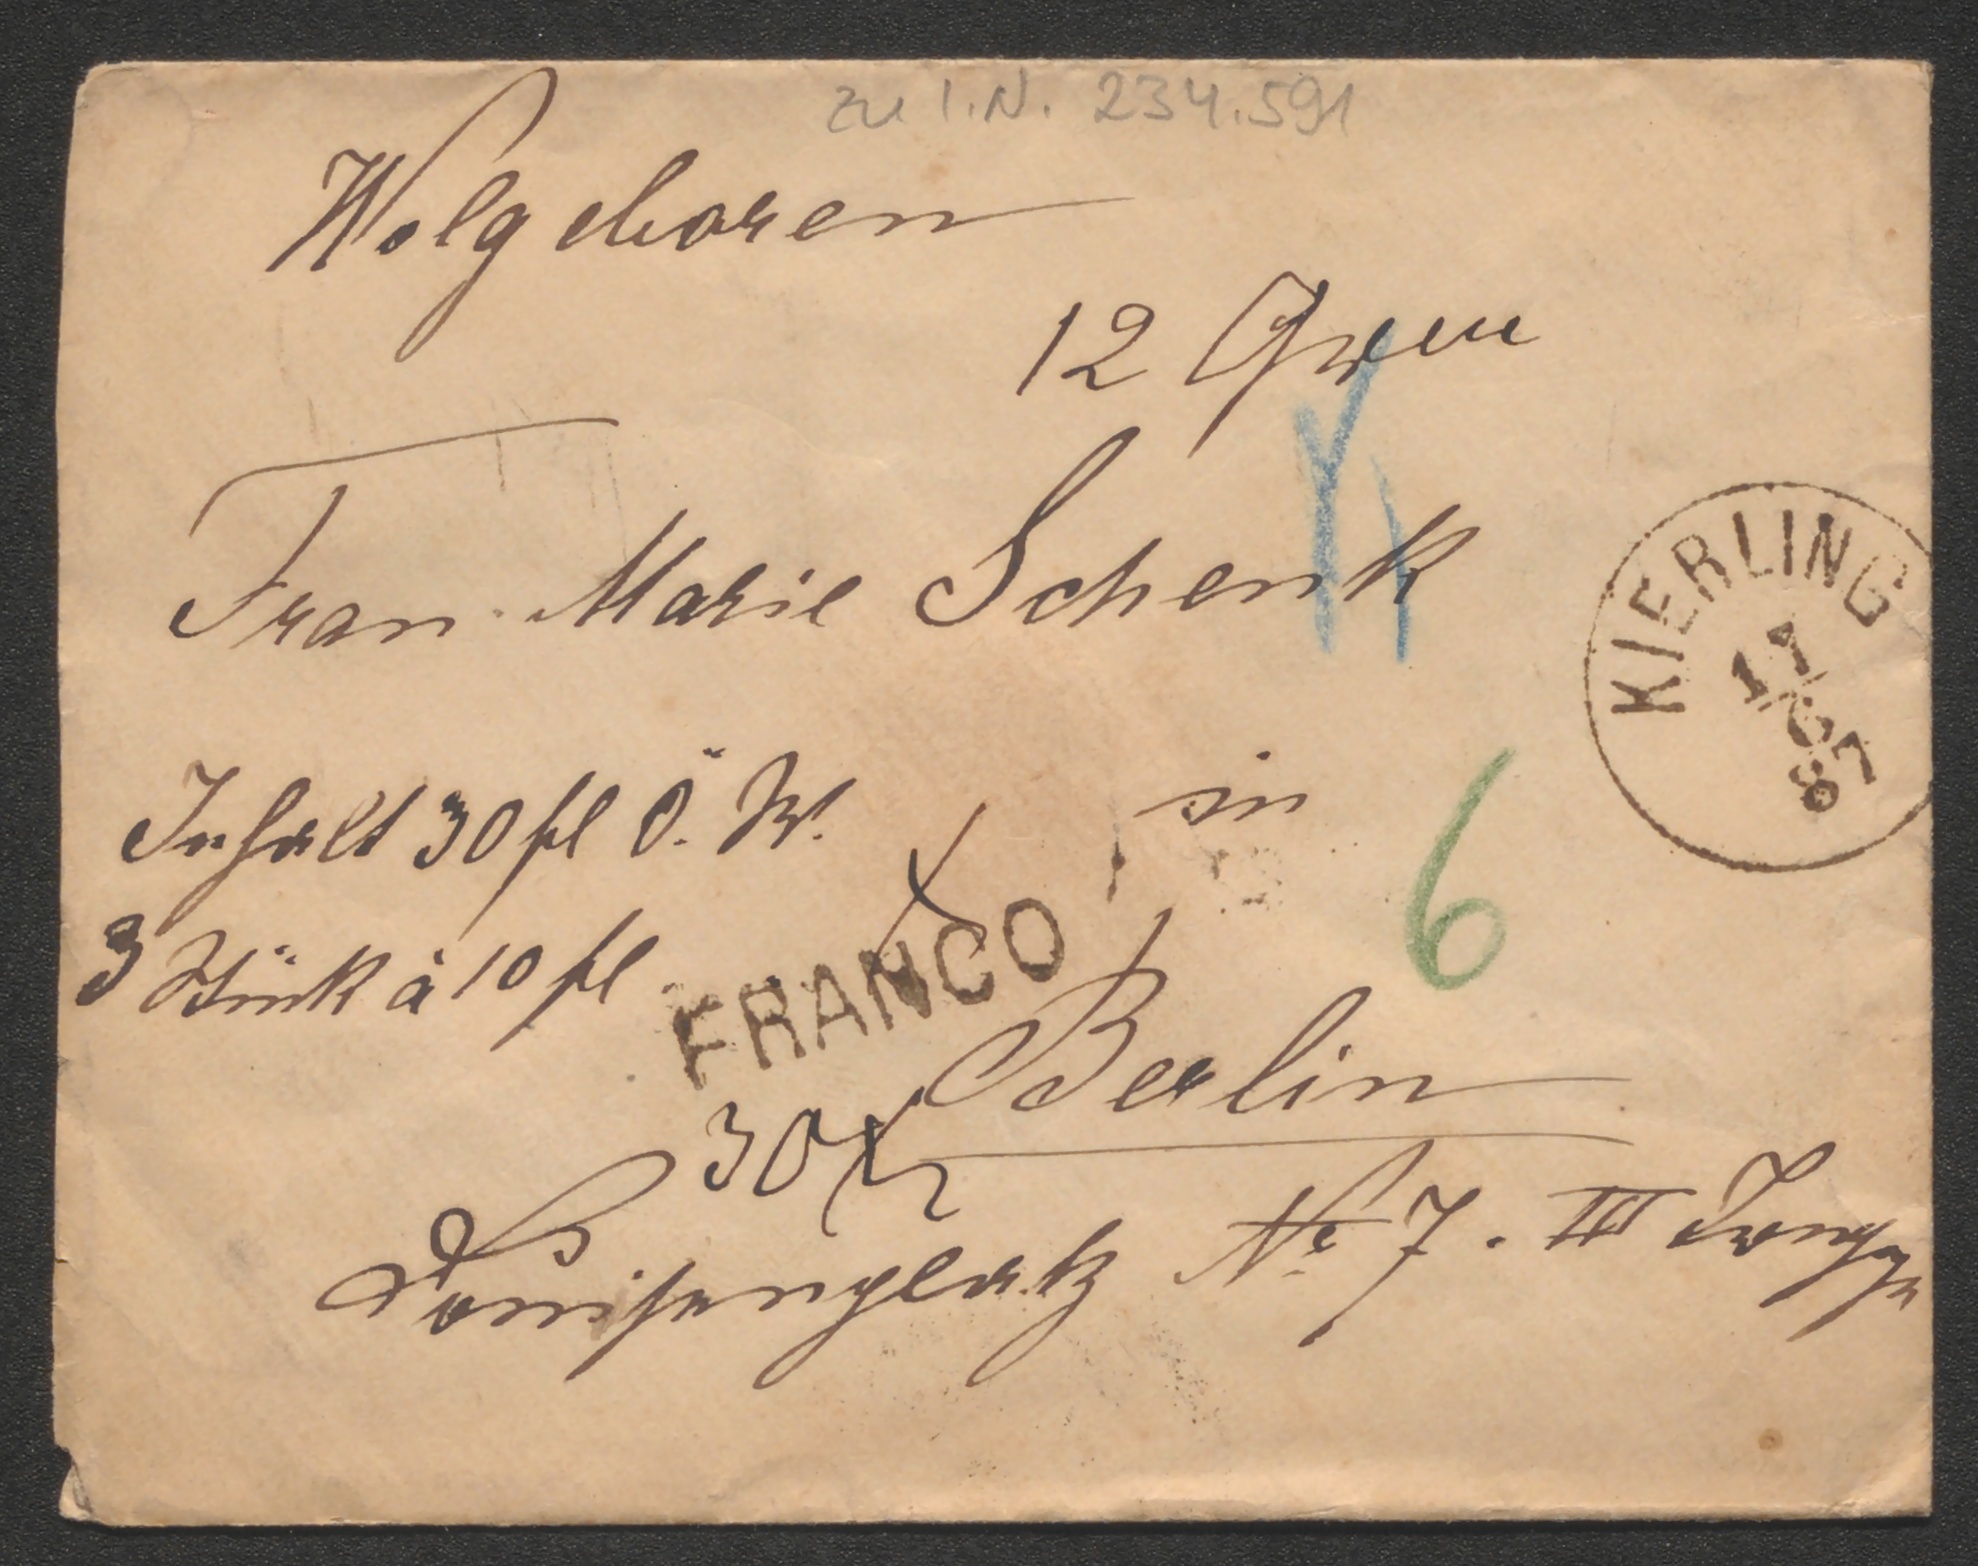 zu I.N. 234.591
Wolgeboren
12 Grm
Frau Marie Schenk
KIERLING
17
87
Inhalt 30 fl Ö. W.
in
6
3 Stük à 10 fl.
FRANCO
Berlin
30
Louisenplatz No 7. III Treppe